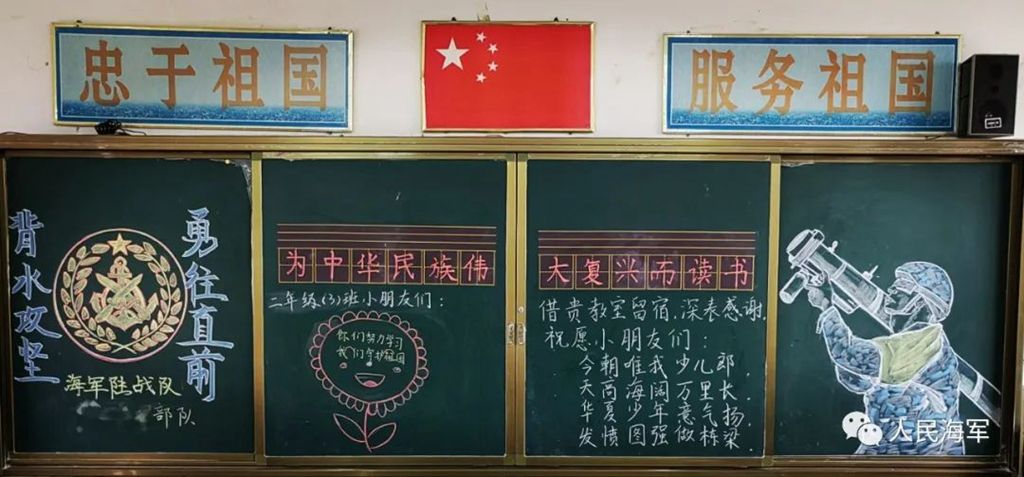 忠于祖国
服务祖国
背水攻坚
勇往直前
海军陆战队
部队
为中华民族伟
大复兴而读书
二年级(3)班小朋友们：
你们努力学习
我们守护祖国
借贵教室留宿，深表感谢，
祝愿小朋友们：
今朝唯我少儿郎，
天高海阔万里长，
华夏少年意气扬，
发愤图强做栋梁
人民海军